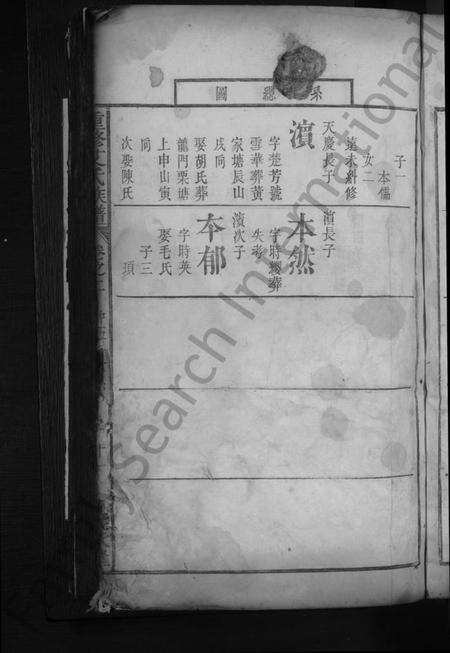 系總圖
子一
本儒
女二
遠未糾修
天慶長子
濵
字楚芳號
雪華葬黄
家塘辰山
戌向
娶胡氏葬
龍門栗塘
上申山寅
向
次娶陳氏
濵長子
本然
字時
葬
失考
濵次子
本郁
字時英
娶毛氏
子三
項
重修
氏族譜
FamilySearch International